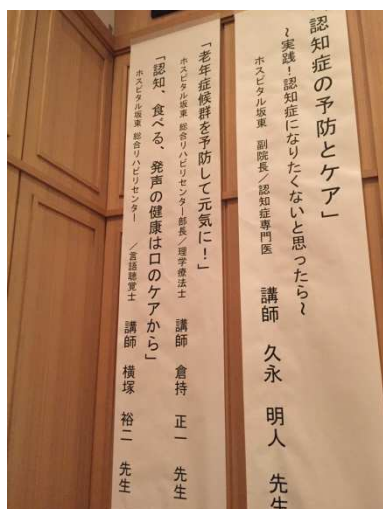 認知症の予防とケア」
~実践!認知症になりたくないと思ったら~
ホスピタル坂東 副院長/認知症専門医
講師 久永 明人 先生
「老年症候群を予防して元気に!」
ホスピタル坂東 総合リハビリセンター部長/理学療法士
講師 倉持 正一 先生
「認知、食べる、発声の健康は口のケアから」
ホスピタル坂東 総合リハビリセンター /言語聴覚士
講師 横塚 裕二 先生